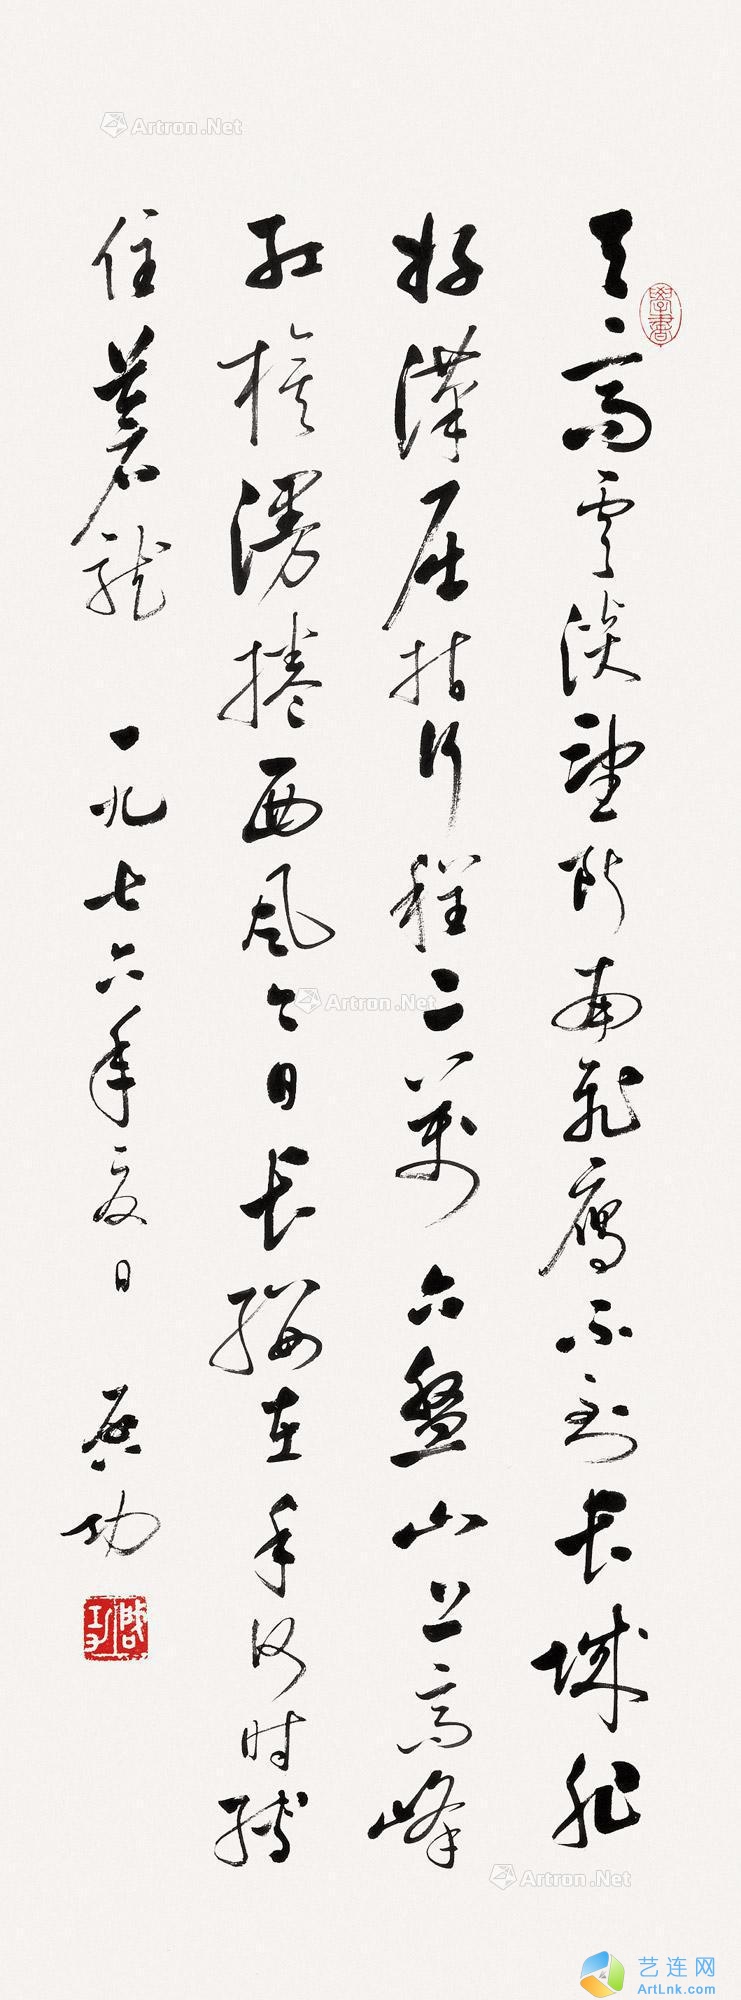 天高雲淡望断南飛雁不到长城非
好漢屈指行程二萬 六盤山上高峰
紅旗漫捲西風今日长纓在手何时縛
住蒼龍 一九七六年夏日 启功
學書
啟功
Artron.Net
Artron.Net
Artron.Net
艺连网
ArtLnk.com